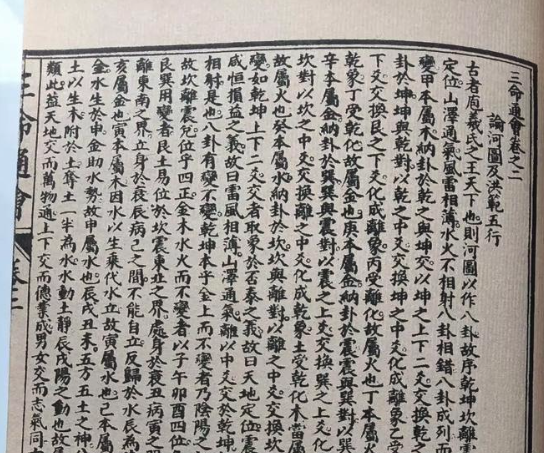 三命通會卷之二
論河圖及洪範五行
古者庖羲氏之王天下也則河圖以作八卦故序乾坎離震
定位山澤通氣風雷相薄水火不相射八卦相錯八卦成列而
變甲本屬木納卦於乾乾與坤交以坤之上下二爻交換乾之
卦於坤坤與乾對以乾之中爻交換坤之中爻化成離象乙受
下爻交換艮之下爻化成離象丙受離化故屬火也丁本屬火
乾象丁受乾化故屬金也庚本屬金納卦於震震與巽對以巽
辛本屬金納卦於巽巽與震對以震之上爻交換巽之上爻化
坎對以坎之中爻交換離之中爻化成乾象
故屬火也癸本屬水納卦於坎坎與離對以離之中爻交換坎
變如乾坤上下二爻交者取象於否泰之義故曰天地定位坎
咸恒損益之義故曰雷風相薄山澤通氣離以中爻交於乾坤
相射是也八卦有變不變乾坤本乎金土而不變者乃陰陽之
故坎離震兌位乎四正金木水火而不變者以子午卯酉四位
艮巽用變者艮土易位於坎震東北之界處身於衰丑病寅之
離東南之界立身於衰辰病巳之間不能自立反歸於水辰為
亥屬金也寅本屬木因水以生乘代水立故寅屬水也巳本屬
金水生於申金助水勢故申屬水也辰戌丑未五方五土之神
土以生木附於土奪土一半為水水動土靜辰戌陽之動也故
類此益天地交而萬物通上下交而
成男女交而志氣同
三命通會
卷二